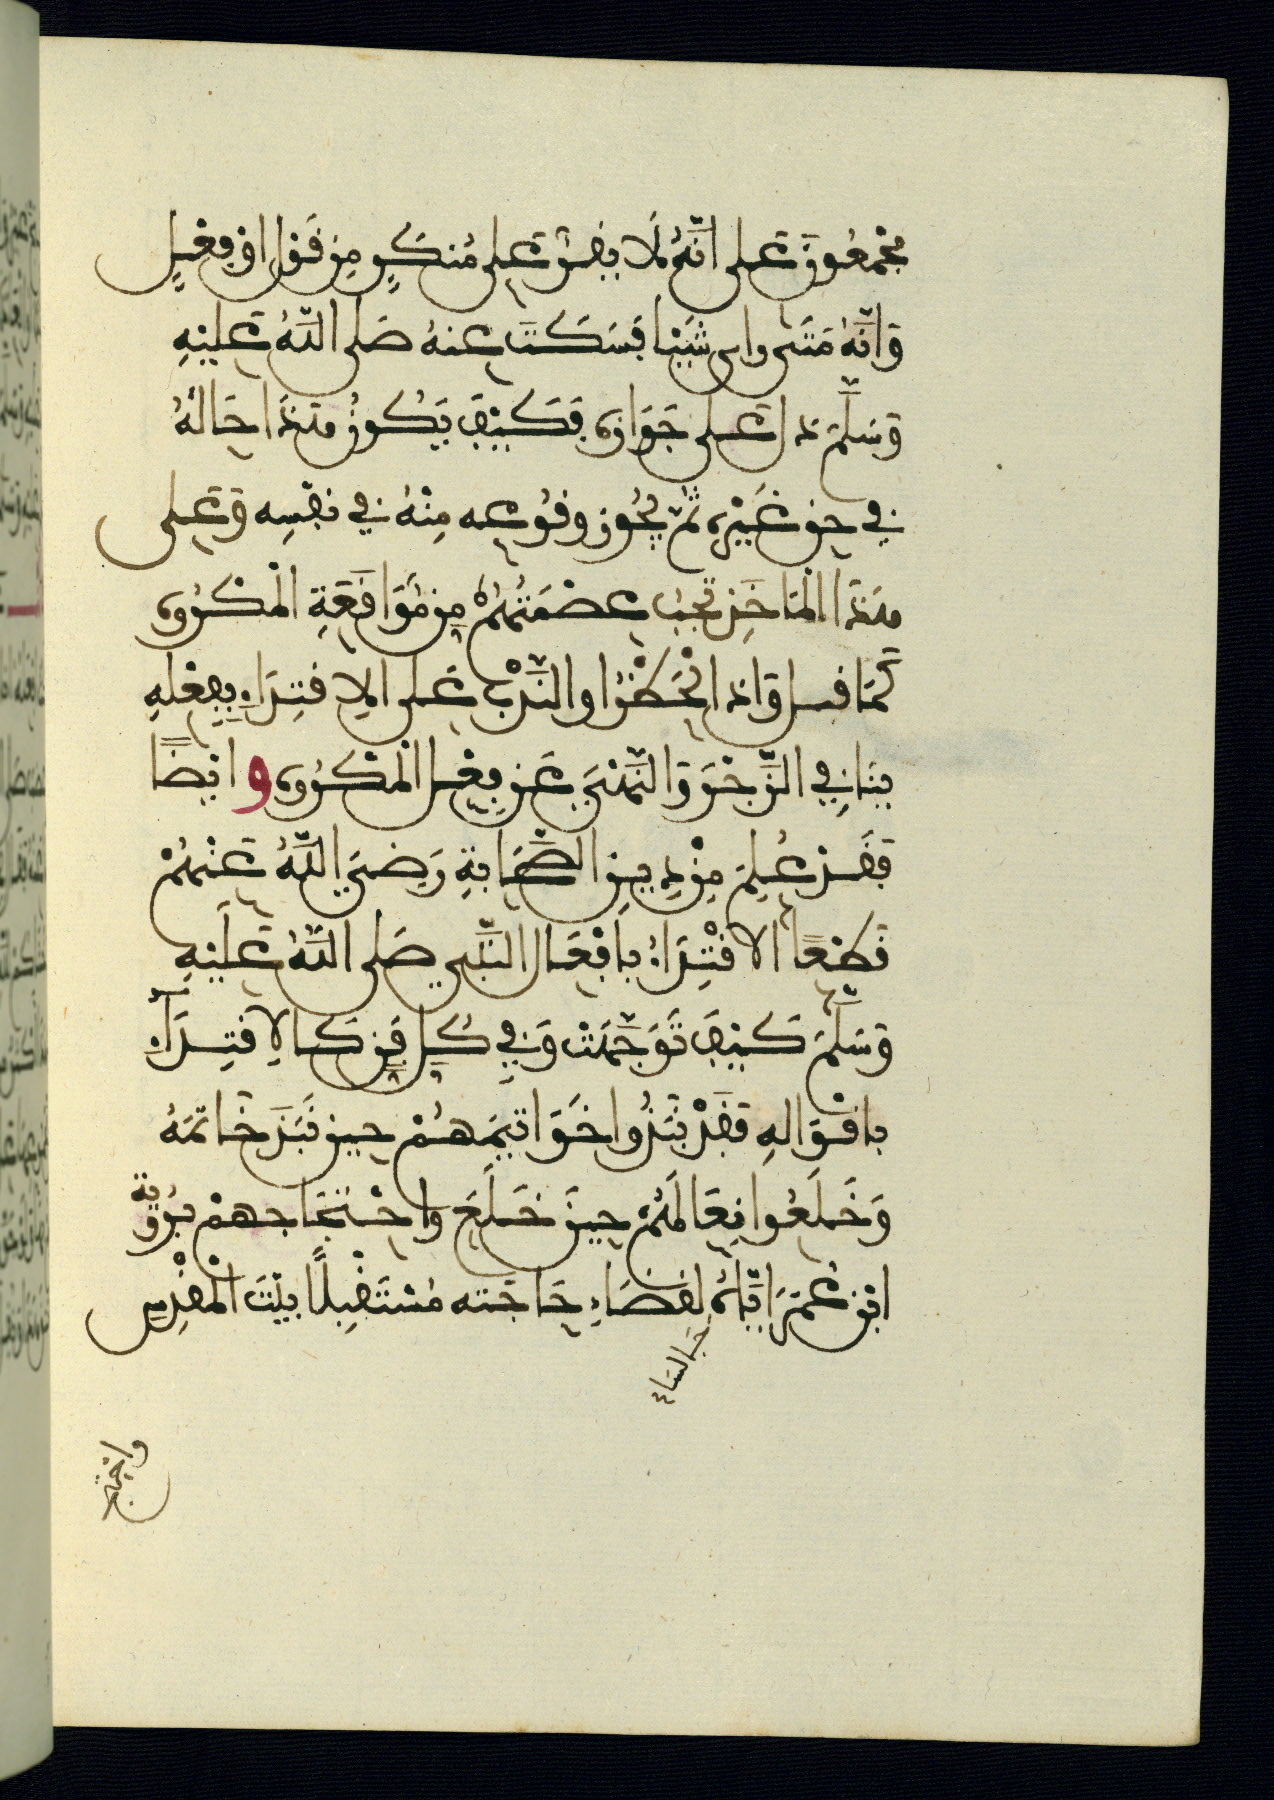 مُجْمِعُونَ عَلَى أَنَّهُ لَا يُقِرُّ عَلَى مُنكَرٍ مِن قَوْلٍ أَوْ فِعْلٍ
وَأَنَّهُ مَتَى رأى شَيْئًا فَسَكَتَ عنهُ صَلَى اللَّهُ عَلَيْهِ
وَسَلَّمَ دل عَلَى جَوَازِهِ فَكَيْفَ يَكُونُ هَذَا حَالُهُ
في حق غَيْرِهِ ثُمَّ يَجُوز وقُوعه مِنْهُ في نفْسِه وَعَلَى
هَذَا الْمَأخَذِ تجبُ عصْمَتُهُ مِن مُوَاقَعَةِ الْمَكْرُوهِ
كَمَا قيل وَاذ الْحَظْرُ او النَّدْبُ عَلَى الاقتِدَاءِ بِفِعْلِهِ
يُنَافِي الزَّجْرَ وَالنَّهْيَ عَن فِعْلِ الْمَكْرُوهِ وايْضًا
فَقَدْ عُلِمَ مِنْ دِينِ الصَّحَابَةِ رَضِيَ اللَّهُ عَنْهُمْ
قَطْعًا الاقْتِدَاءُ بأفْعَال النَّبي صَلى اللَّهُ عَلَيْهِ
وَسَلَّمَ كَيْفَ تَوَجَّهَتْ وَفي كُلِّ فَنٍّ كَالاِقْتِدَآءِ
بأقْوَالهِ فَقَدْ نَبَذُوا خَوَاتيمَهُمْ حين نَبَذَ خَاتمَهُ
وَخَلَعُوا نِعَالَهُمْ حِينَ خَلَعَ واحْتجَاجهمْ برُؤيةِ
ابْنِ عُمَرَ إيَّاهُ جَالسًا لقضَاءِ حَاجَته مُسْتَقْبِلًا بيْتَ الْمَقْدِسِ
واحْتج